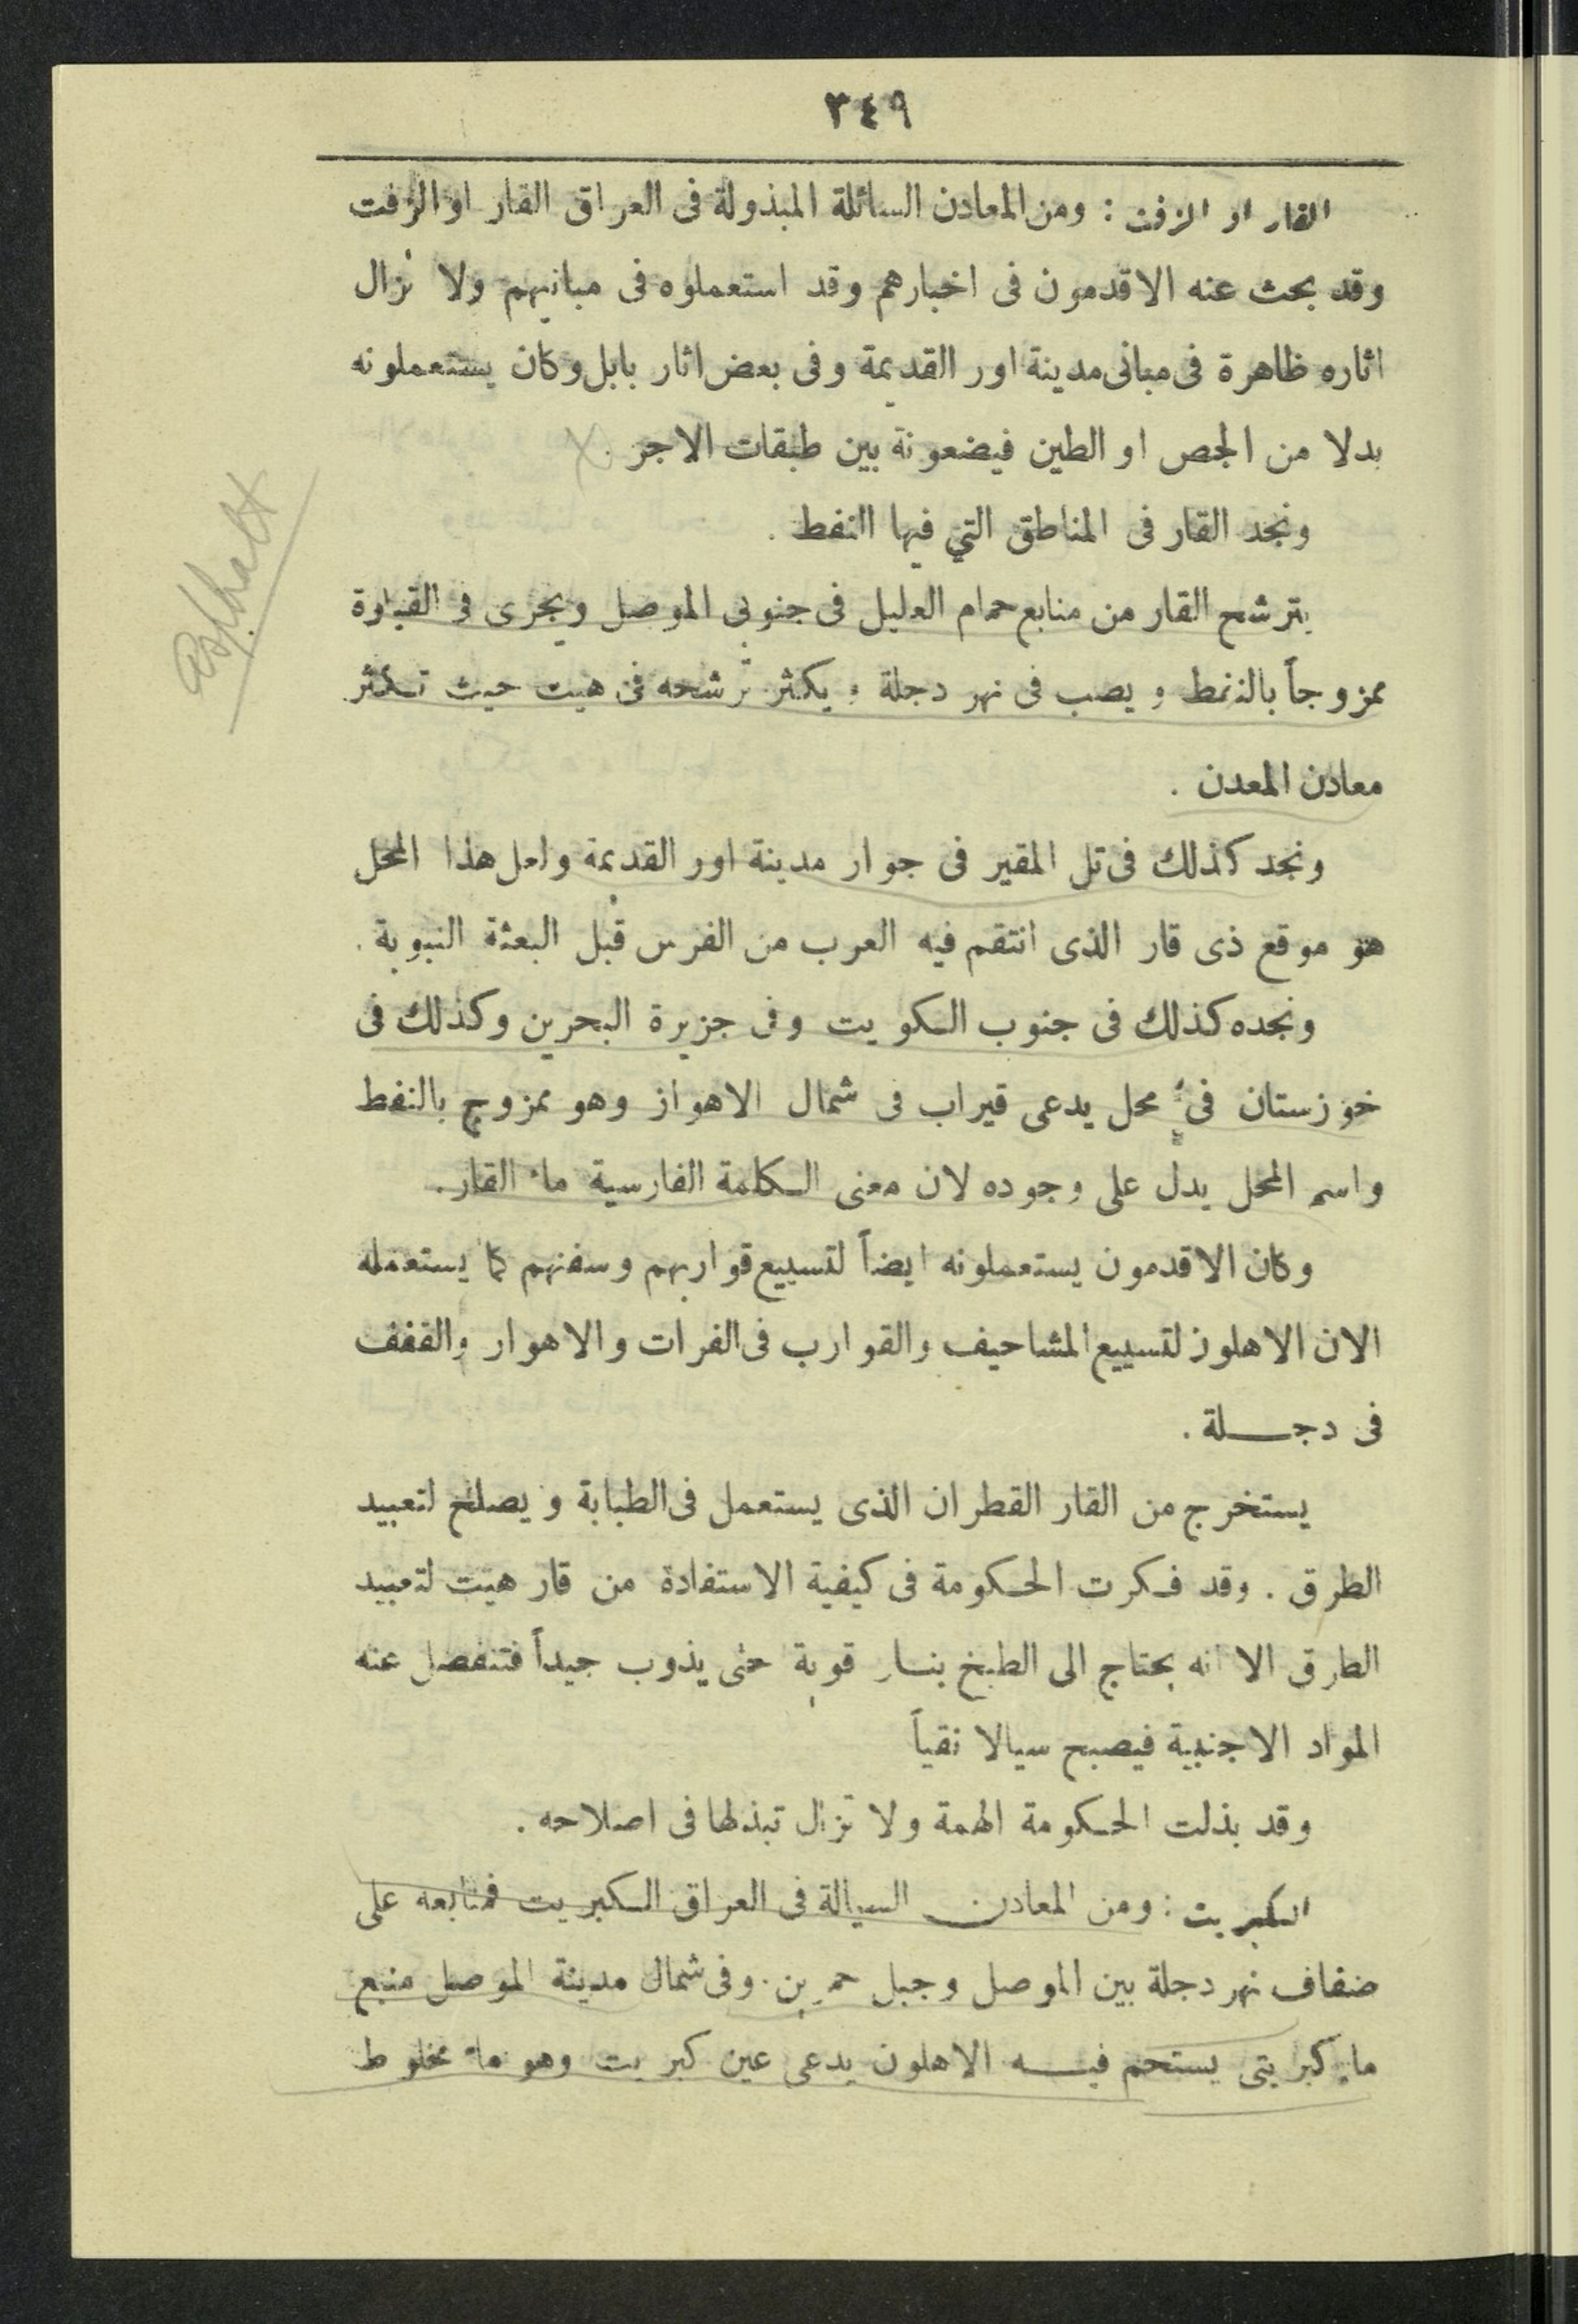 ٣٤٩
القار او الزفت : ومن المعادن السائلة المبذولة فى العراق القار او الزفت
وقد بحث عنه الاقدمون فى اخبارهم وقد استعملوه فى مبانيهم ولا تزال
اثاره ظاهرة فى مبانى مدينة اور القديمة وفى بعض اثار بابل وكان يستعملونه
بدلا من الجص او الطين فيضعونة بين طبقات الاجر .
ونجد القار فى المناطق التي فيها النفط .
يترشح القار من منابع حمام العليل فى جنوبى الموصل ويجرى فى القيارة
ممزوجاً بالنفط ويصب فى نهر دجلة ويكثر ترشحه فى هيت حيث تكثر
معادن المعدن .
ونجد كذلك فى تل المقير فى جوار مدينة اور القديمة ولعل هذا المحل
هو موقع ذى قار الذى انتقم فيه العرب من الفرس قبل البعثة النبوية .
ونجده كذلك فى جنوب الكويت وفى جزيرة البحرين وكذلك فى
خوزستان فى محل يدعى قيراب فى شمال الاهواز وهو ممزوج بالنفط
واسم المحل يدل على وجوده لان معنى الكلمة الفارسية ماء القار .
وكان الاقدمون يستعملونه ايضاً لتسييع قواربهم وسفنهم كما يستعمله
الان الاهلون لتسييع المشاحيف والقوارب فى الفرات والاهوار والقفف
فى دجلة .
يستخرج من القار القطران الذى يستعمل فى الطبابة ويصلح لتعبيد
الطرق . وقد فكرت الحكومة فى كيفية الاستفادة من قار هيت لتعبيد
الطرق الا انه يحتاج الى الطبخ بنار قوية حتى يذوب جيداً فتنفصل عنه
المواد الاجنبية فيصبح سيالا نقياً
وقد بذلت الحكومة الهمة ولا تزال تبذلها فى اصلاحه .
الكبريت : ومن المعادن السيالة فى العراق الكبريت فمنابعه على
ضفاف نهر دجلة بين الموصل وجبل حمرين . وفى شمال مدينة الموصل منبع
ماء كبريتى يستحم فيه الاهلون يدعى عين كبريت وهو ماء مخلوط
asphalt